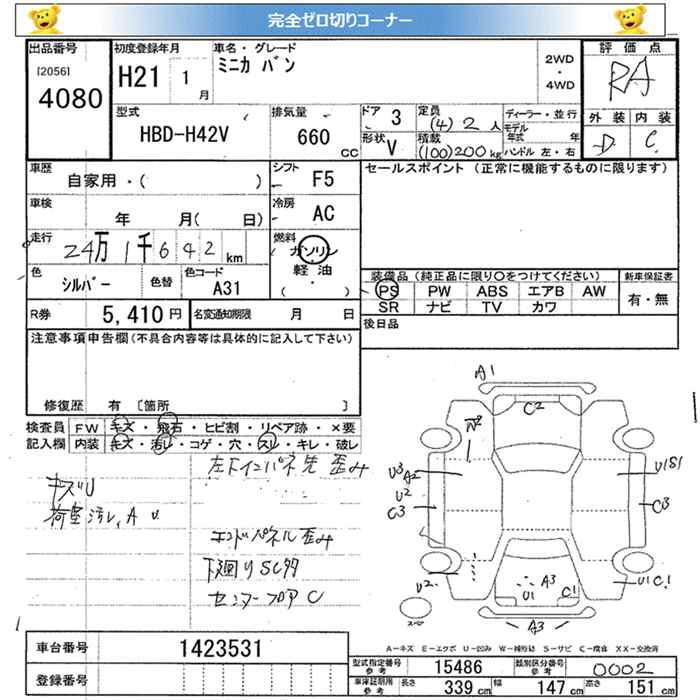 完全ゼロ切りコーナー
出品番号
[2056]
4080
初度登録年月
H21 1月
車名・グレード
ミニカ バン
2WD
・
4WD
評価点
RA
型式
HBD-H42V
排気量
660 CC
ドア 3
形状 V
定員
(4) 2人
積載
(100)200kg
ディーラー・並行
モデル年式 年
ハンドル 左・右
外装 内装
D C
車歴
自家用・( )
シフト F5
セールスポイント (正常に機能するものに限ります)
車検
年 月( 日)
冷房 AC
走行
24万1千642km
燃料
ガソリン
・
軽油
( ・ )
色
シルバー
色替
色コード
A31
装備品(純正品に限り○をつけてください)
新車保証書
PS PW ABS エアB AW
有・無
SR ナビ TV カワ
R券 5,410円
名変通知期限 月 日
後日品
注意事項申告欄(不具合内容等は具体的に記入して下さい)
修復歴 有 〔箇所 〕
検査員
記入欄
FW キズ・飛石・ヒビ割・リペア跡・×要
内装 キズ・汚レ・コゲ・穴・スリ・キレ・破レ
左下インパネ先 歪み
キズU
荷室汚レ,A U
エンドパネル歪み
下廻りSC多
センターフロアC
A1
C2
U3
A2
U2
C3
U1S1
C3
U2
A3
U1
C1
U1C1
A3
A-キズ E-エクボ U-凹み W-補修跡 S-サビ C-腐食 XX-交換済
車台番号
1423531
登録番号
型式指定番号
参考
15486
類別区分番号
参考
0002
車庫証明用
参考
長さ 339cm
幅 147cm
高さ 151cm